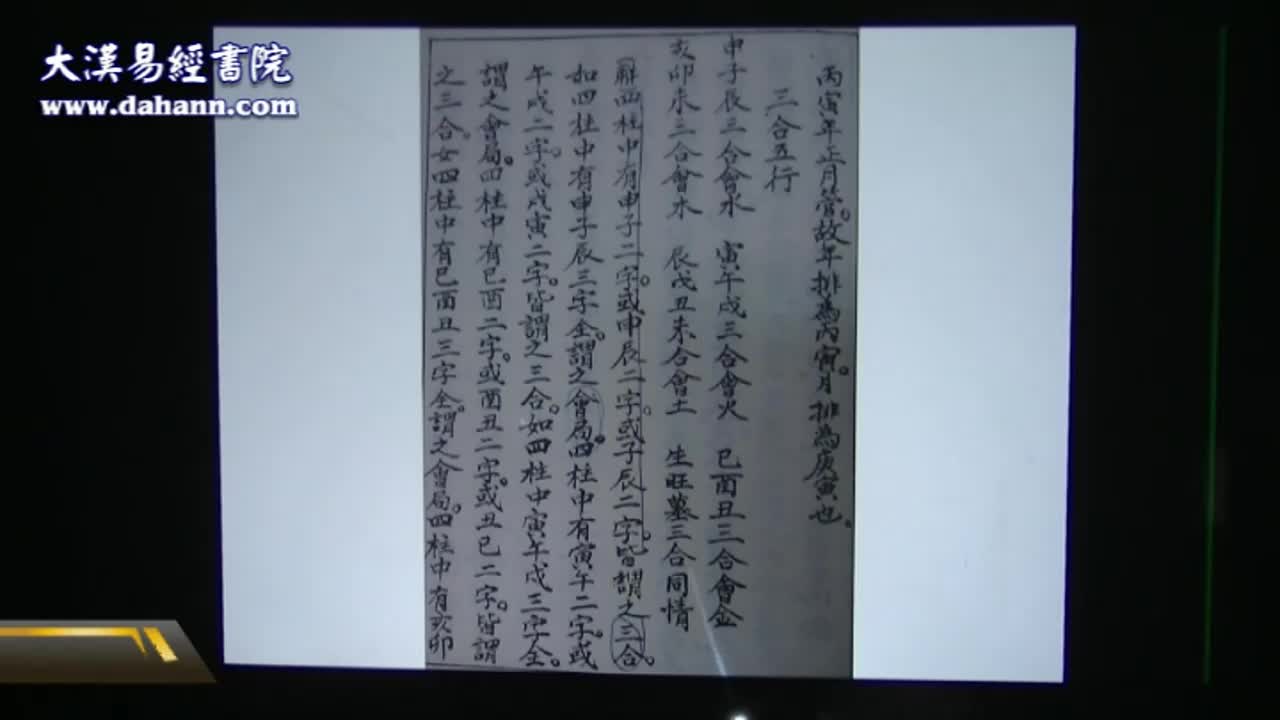 大漢易經書院
www.dahann.com
丙寅年正月管。故年排為丙寅。月排為庚寅也。
三合五行
申子辰三合會水 寅午戌三合會火 巳酉丑三合會金
亥卯未三合會木 辰戌丑未合會土 生旺墓三合同情
解四柱中有申子二字。或申辰二字。或子辰二字。皆謂之三合。
如四柱中有申子辰三字全。謂之會局。四柱中有寅午二字。或
午戌二字。或戌寅二字。皆謂之三合。如四柱中寅午戌三字全。
謂之會局。四柱中有巳酉二字。或酉丑二字。或丑巳二字。皆謂
之三合。女四柱中有巳酉丑三字全。謂之會局。四柱中有亥卯